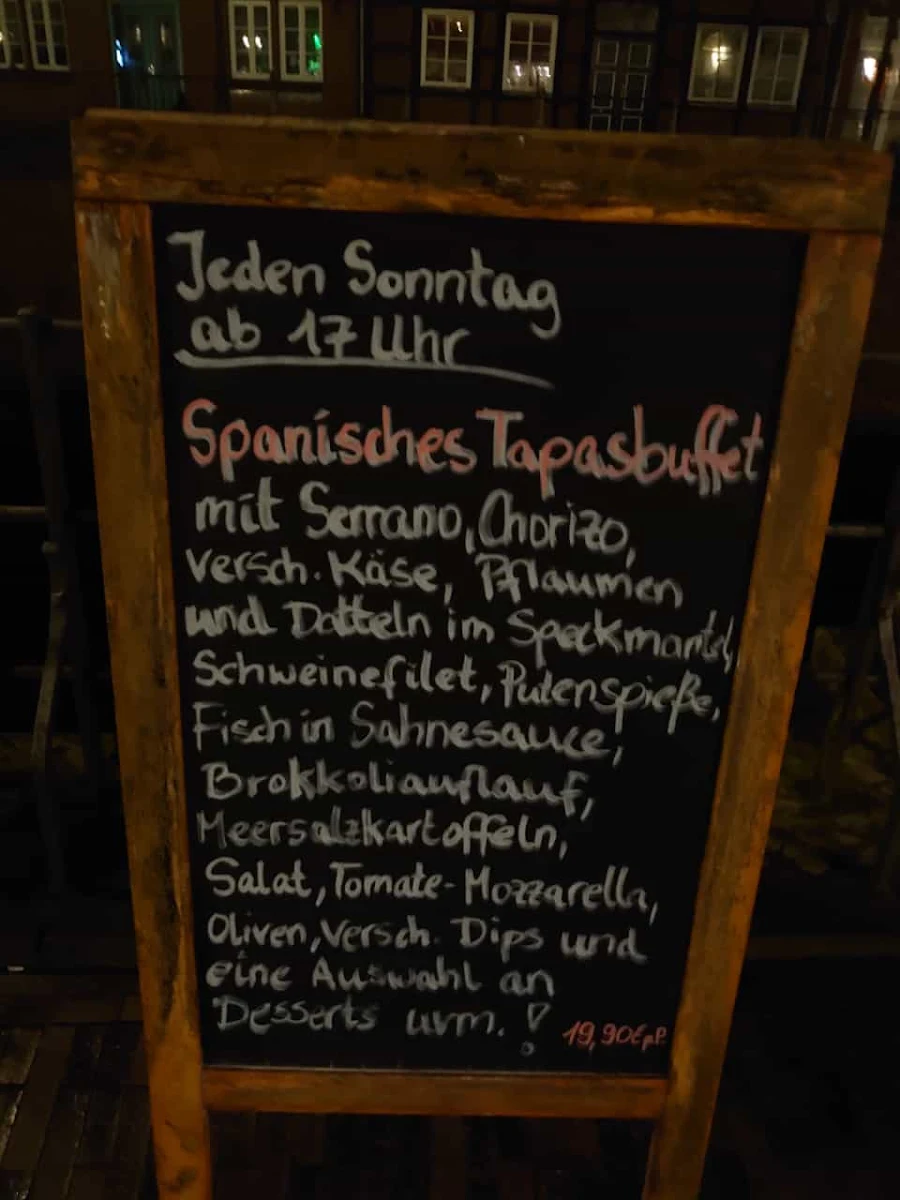 Jeden Sonntag
ab 17 Uhr
Spanisches Tapasbuffet
mit Serrano, Chorizo,
versch. Käse, Pflaumen
und Datteln im Speckmantel,
Schweinefilet, Putenspieße,
Fisch in Sahnesauce,
Brokkoliauflauf,
Meersalzkartoffeln,
Salat, Tomate-Mozzarella,
Oliven, versch. Dips und
eine Auswahl an
Desserts uvm. !
19,90€ p.P.